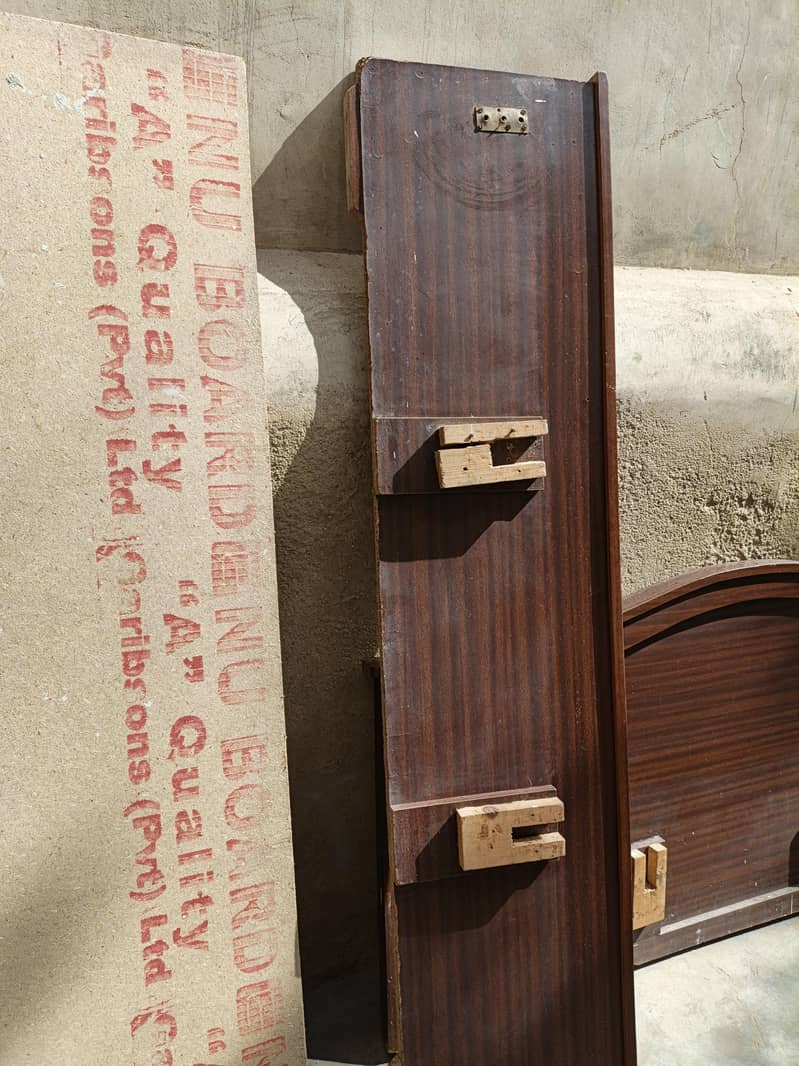 NU BOARD NU BOARD
"A" Quality "A" Quality
Garibsons (Pvt) Ltd Garibsons (Pvt) Ltd